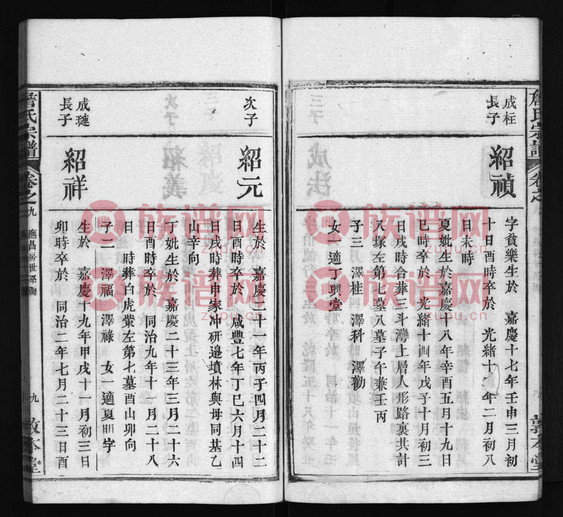 詹氏宗譜
卷之
敦本堂
成枉
長子
紹禎
字貧樂生於 嘉慶十七年壬申三月初
十日酉時卒於 光緒十 年二月初八
日未時
夏妣生於嘉慶十八年辛酉五月十九日
巳時卒於 光緒十四年戊子十月初三
日戌時合葬三斗灣上層人形路裏共計
八塚左第七墓子午兼壬丙
子三 澤桂 澤科 澤勤
女一適丁 堂
次子
紹元
生於 嘉慶二十一年丙子四月二十二
日酉時卒於 咸豐七年丁巳六月十四
日戌時葬申家冲研邉墳林與母同基乙
山辛向
丁妣生於嘉慶二十三年三月二十六
日酉時卒於 同治九年十一月二十八
日 時葬白虎 左第七墓酉山卯向
子二 澤福 澤祿 女一適夏明字
成璉
長子
紹祥
生於 嘉慶十九年甲戌十一月初三日
卯時卒於 同治二年七月二十三日酉
詹氏宗譜
卷之九
九
敦本堂
族谱网
zupu.cn
族谱网
zupu.cn